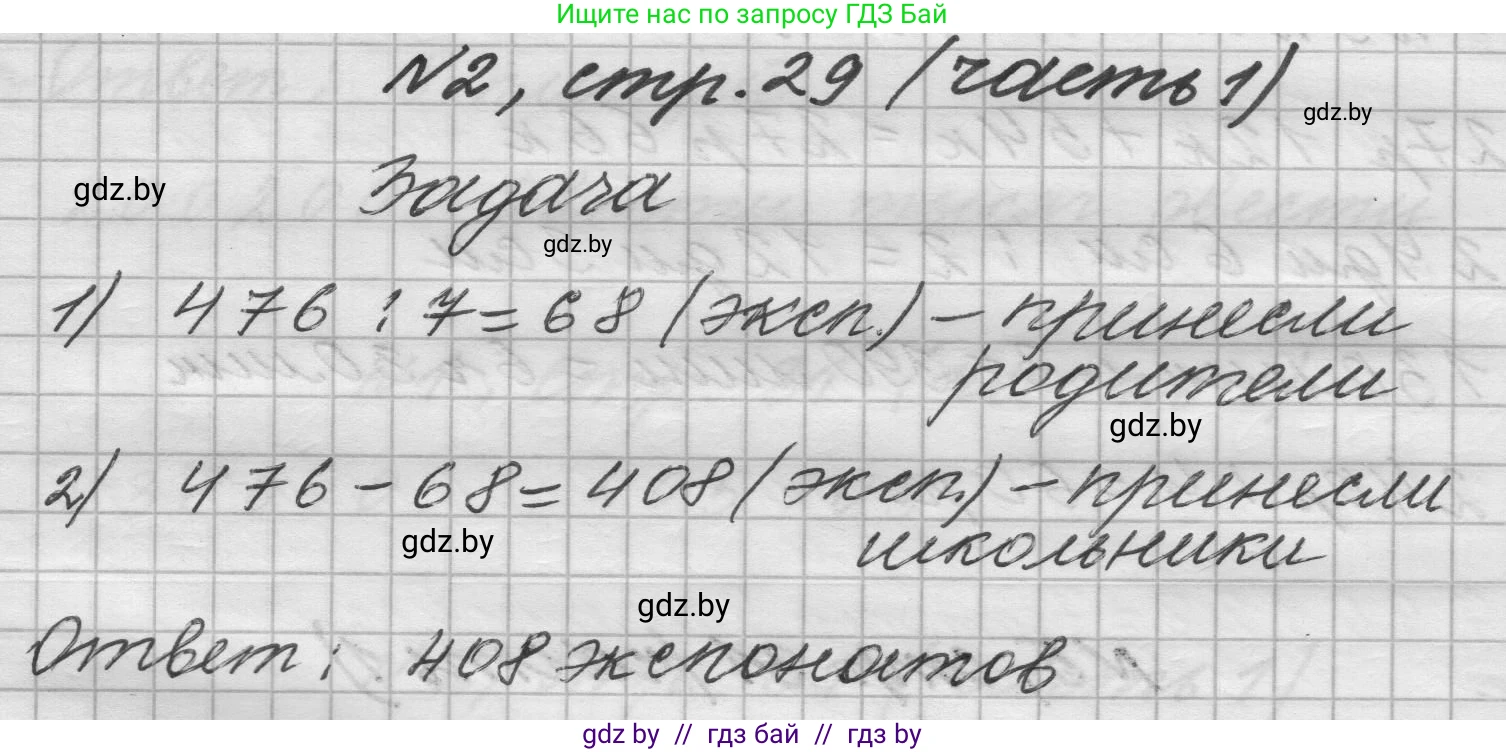 Ищите нас по запросу ГДЗ Бай
№2, стр. 29 (часть 1)
gdz.by
gdz.by
Задача
gdz.by
1) 476 : 7 = 68 (эксп.) – принесли
родители
gdz.by
2) 476 – 68 = 408 (эксп.) – принесли
школьники
gdz.by
gdz.by
Ответ: 408 экспонатов
gdz.by // гдз бай // гдз by